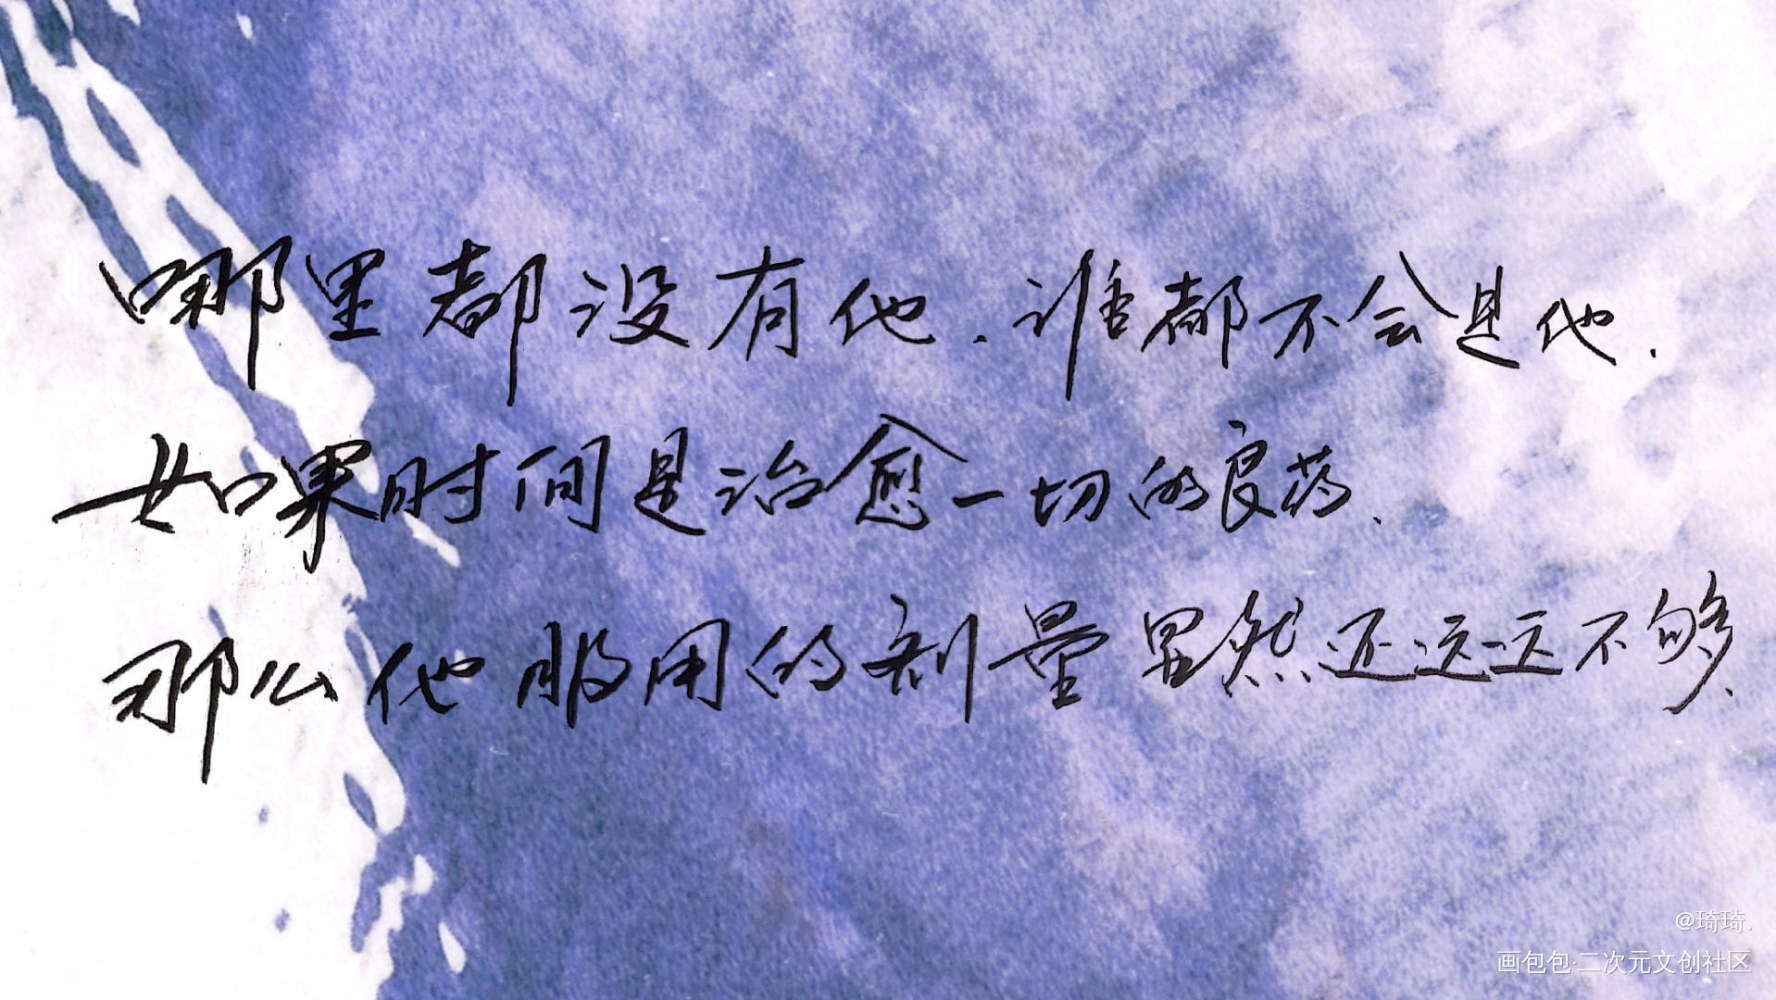 哪里都没有他.谁都不会是他.
如果时间是治愈一切的良药、
那么他服用的剂量显然还远远不够.
@琦琦.
画包包·二次元文创社区